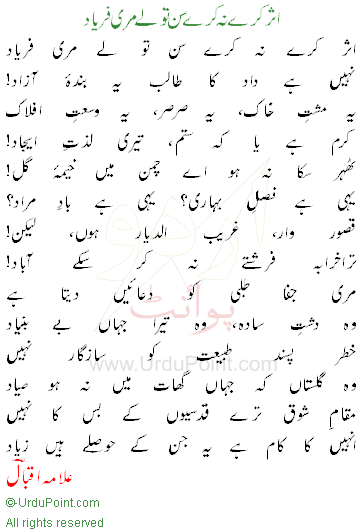 اثر کرے نہ کرے سن تو لے مری فریاد
اثر کرے نہ کرے سن تو لے مری فریاد
نہیں ہے داد کا طالب یہ بندۂ آزاد!
یہ مشتِ خاک، یہ صرصر، یہ وسعتِ افلاک
کرم ہے یا کہ ستم، تیری لذتِ ایجاد!
ٹھہر سکا نہ ہو اے چمن میں خیمۂ گل!
یہی ہے فصلِ بہاری؟ یہی ہے بادِ مراد؟
قصور وار، غریب الدیار ہوں، لیکن!
تراخرابہ فرشتے نہ کر سکے آباد!
مری جفا طلبی کو دعائیں دیتا ہے
وہ دشتِ سادہ، وہ تیرا جہاں بے بنیاد
خطر پسند طبیعت کو سازگار نہیں
وہ گلستاں کہ جہاں گھات میں نہ ہو صیاد
مقامِ شوق ترے قدسیوں کے بس کا نہیں
انہیں کا کام ہے یہ جن کے حوصلے ہیں زیاد
علامہ اقبالؒ
اردو
پوائنٹ
www.UrduPoint.com
©-UrduPoint.com
All rights reserved